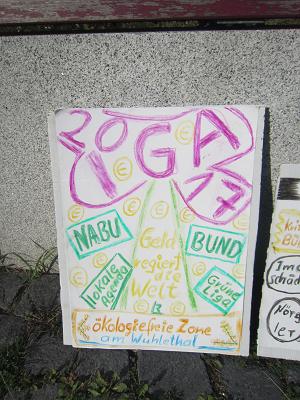 20
IGA
17
NABU
BUND
Geld
regiert
die
Welt
lokale
Agenda
Grüne
Liga
ökologiefreie Zone
am Wuhletal
Im
schäd
Nörg
ler